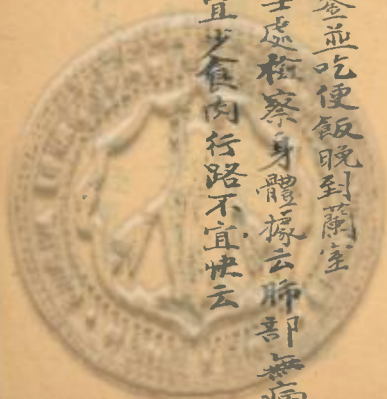 並吃便飯晚到蘭室
處檢察身體據云肺部無病
宜少食肉行路不宜快云